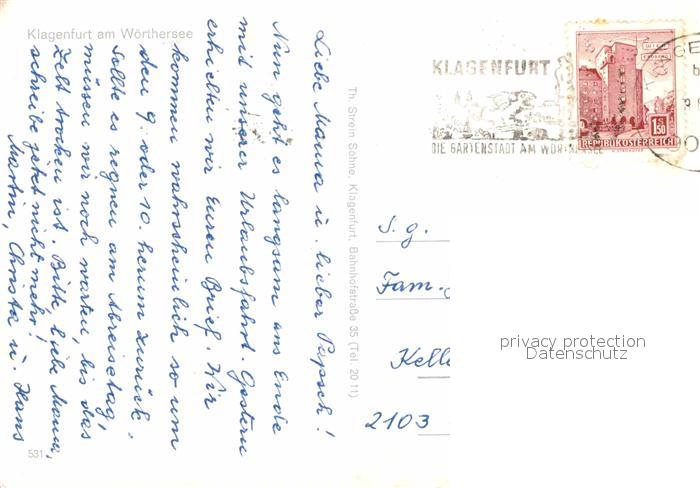 Klagenfurt am Wörthersee
Liebe Mama u. lieber Papsch!
Nun geht es langsam ans Ende
mit unserer Urlaubsfahrt. Gestern
erhielten wir Euren Brief. Wir
kommen wahrscheinlich so um
den 9. oder 10. herum zurück.
Sollte es regnen am Abreisetag,
müssen wir noch warten, bis das
Zelt trocken ist. Bitte, liebe Mama,
schreibe jetzt nicht mehr!
Martin, Christa u. Hans
531
Th. Strein Söhne, Klagenfurt, Bahnhofstraße 35 (Tel. 20 11)
KLAGENFURT
DIE GARTENSTADT AM WÖRTHERSEE
WIEN
1.50
REPUBLIK ÖSTERREICH
S. g.
Fam.
Kell
2103
privacy protection
Datenschutz